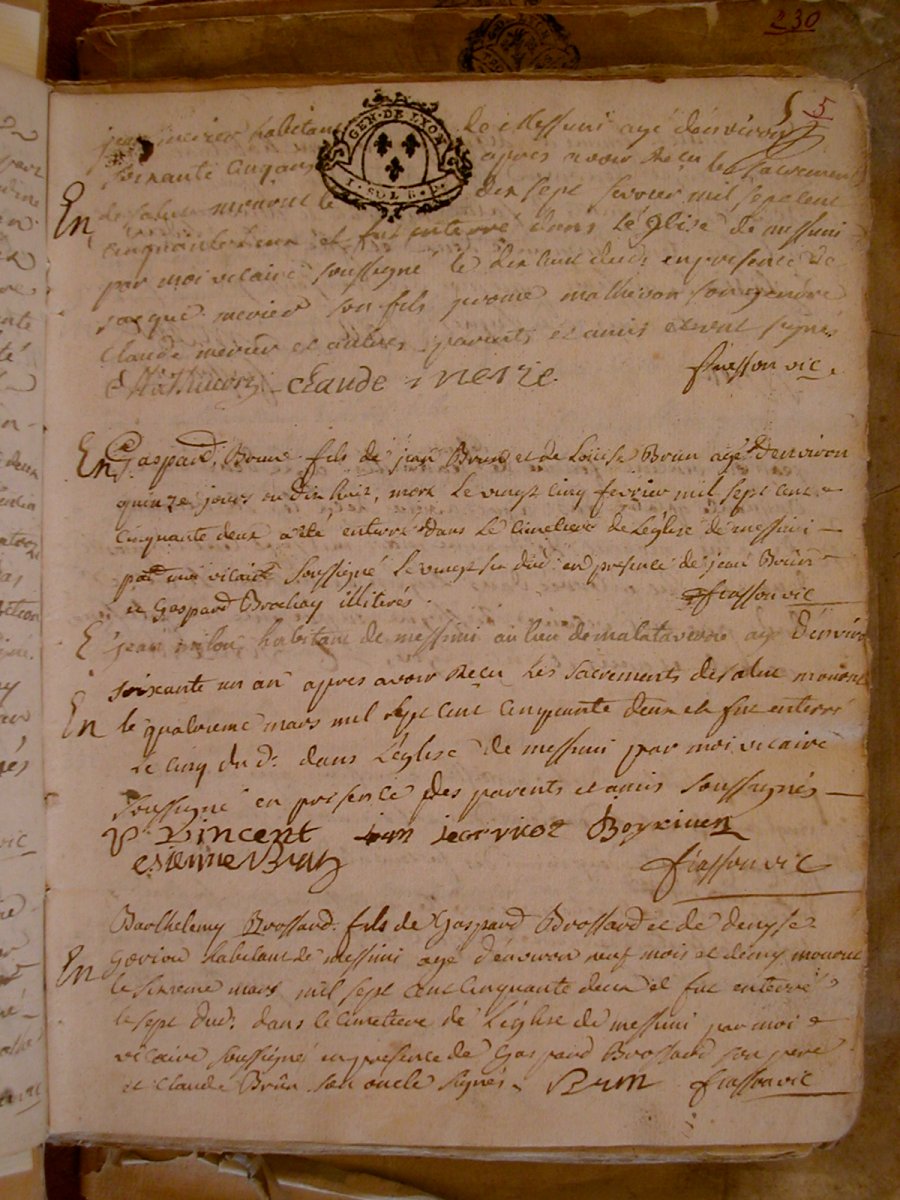 230
5 5
GEN · DE LYON
jean merier habitant de Messimi agé denviron
soixante cinq ans apres avoir Reçu les sacrements
de salut mourut le dix sept fevrier mil sept cent
En
cinquante deux et fut enterré dans L'eglise de messimi
par moi vicaire soussigné le dix huit dud: en presence de
jacque merier son fils
Claude merier et autres parents et amis et ont signés
claude merie fiasson vic.
En Gaspard Brun fils de jean Brun et de Louise Brun agé Denviron
quinze jours ou dix huit, mort Le vingt cinq fevrier mil sept cent
cinquante deux a été enterré dans Le Cimetiere de L'eglise de messimi
par moi vicaire Soussigné Le vingt six dud: en presence de jean Brun
et Gaspard Brochay illiterés fiasson vic
jean milon habitant de messimi au lieu de malataverne agé D'enviro
soixante un an apres avoir Reçu Les sacrements de salut mourut
En le quatrieme mars mil sept cent cinquante deux et fut enterré
Le cinq du d: dans L'eglise de messimi par moi vicaire
soussigné en presence des parents et amis soussignés
P. Vincent
estienne Brun fiasson vic
Barthelemy Brossard fils de Gaspard Brossard et de denyse
En habitant de Messimi agé d'environ neuf mois et demy mourut
le sixieme mars mil sept cent cinquante deux et fut enterré
le sept dud: dans le cimetiere de L'eglise de messimi par moi
vicaire soussigné en presence de Gaspard Brossard son pere
et Claude Brûn son oncle signés. Brun fiasson vic